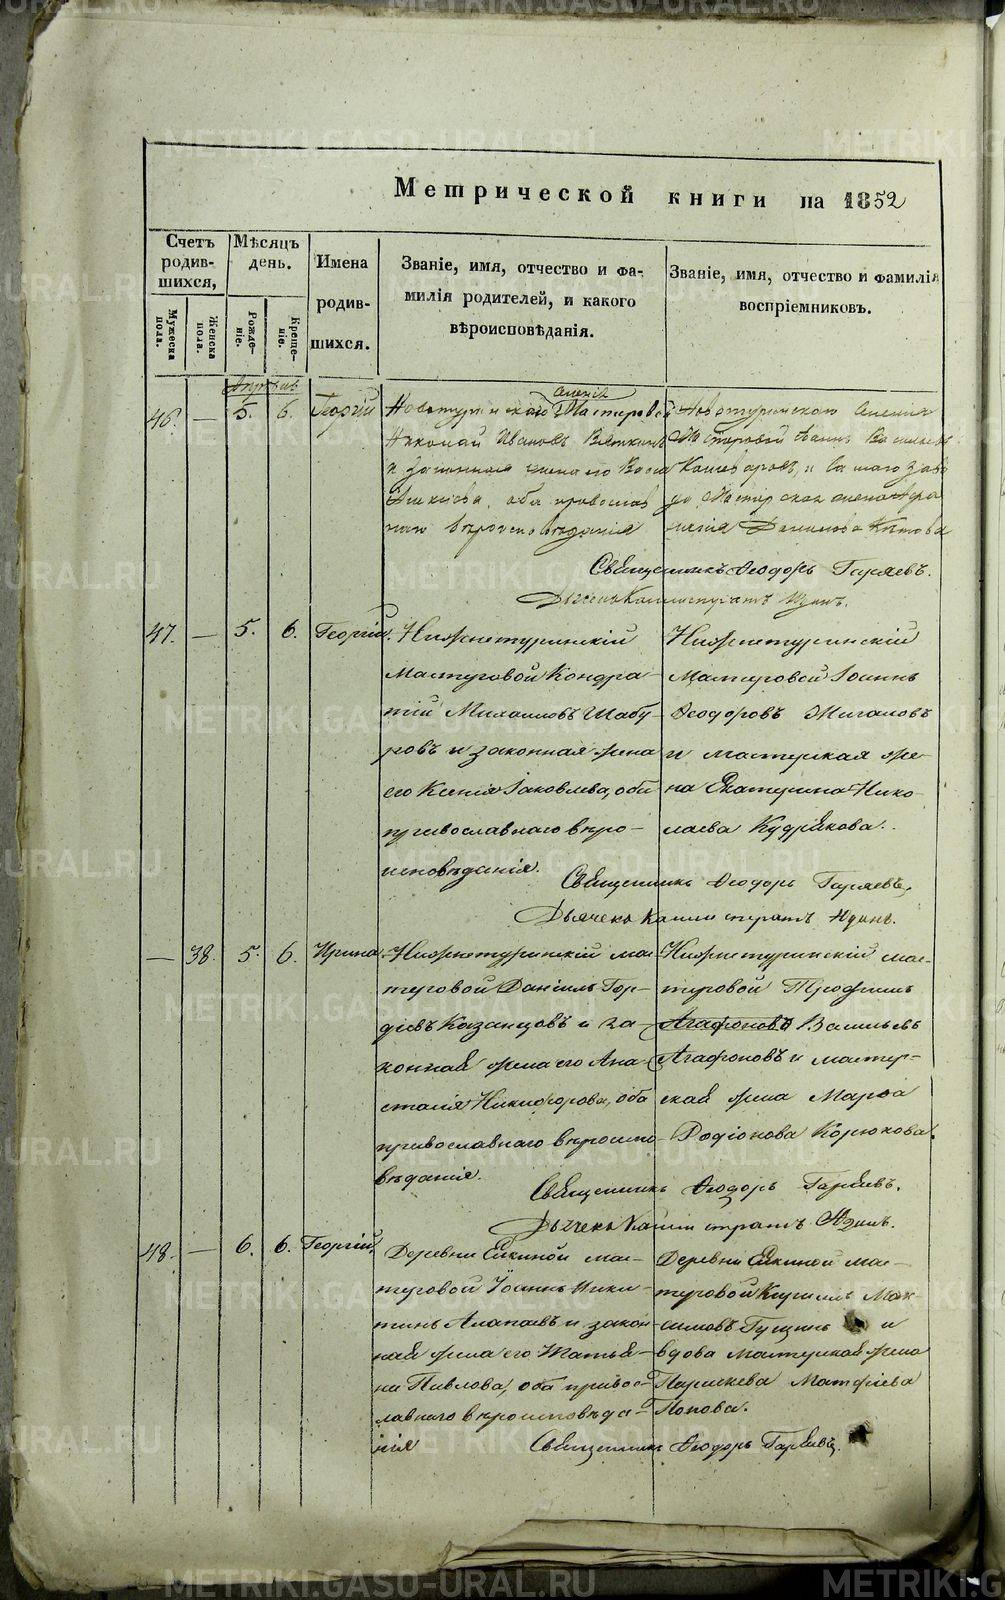 Метрической книги на 1852
Счетъ родившихся,
Мужеска пола.
Женска пола.
Мѣсяцъ день.
Рожденіе.
Крещеніе.
Имена родившихся.
Званіе, имя, отчество и фамилія родителей, и какого вѣроисповѣданія.
Званіе, имя, отчество и фамилія воспріемниковъ.
Апрѣль
46. — 5. 6. Георгій
Мастеровой
Николай Ивановъ
и законная жена его Васса
оба православ
наго вѣроисповѣданія
Мастеровой Іоаннъ Васильевъ
Данилова
Священникъ Ѳеодоръ Гаряевъ.
47. — 5. 6. Георгій.
Нижнетуринскій
мастеровой Кондра-
тій Михаиловъ Шабу-
ровъ и законная жена
его Ксенія Іаковлева, оба
православнаго вѣро-
исповѣданія.
Нижнетуринскій
мастеровой Іоаннъ
Ѳеодоровъ Жигаловъ
и мастерская же-
на Екатерина Нико-
лаева Кудрякова.
Священникъ Ѳеодоръ Гаряевъ,
— 38. 5. 6. Ирина.
Нижнетуринскій мас-
теровой Даніилъ Гор-
дѣевъ Казанцовъ и за-
конная жена его Ана-
стасія Никифорова, оба
православнаго вѣроиспо-
вѣданія.
Нижнетуринскій мас-
теровой Трофимъ
Агафоновъ Васильевъ
Агафоновъ и мастер-
ская жена Марѳа
Родіонова Корюкова.
Священникъ Ѳеодоръ Гаряевъ.
48. — 6. 6. Георгій.
Деревни Елкиной мас-
теровой Іоаннъ Ники-
тинъ Алапаевъ и закон-
ная жена его Татья-
на Павлова, оба право-
славнаго вѣроисповѣда-
нія
Деревни Елкиной мас-
теровой Кириллъ Мак-
симовъ Гущинъ и
вдова мастерская жена
Параскева Матѳіева
Попова.
Священникъ Ѳеодоръ Гаряевъ.
METRIKI.GASO-URAL.RU